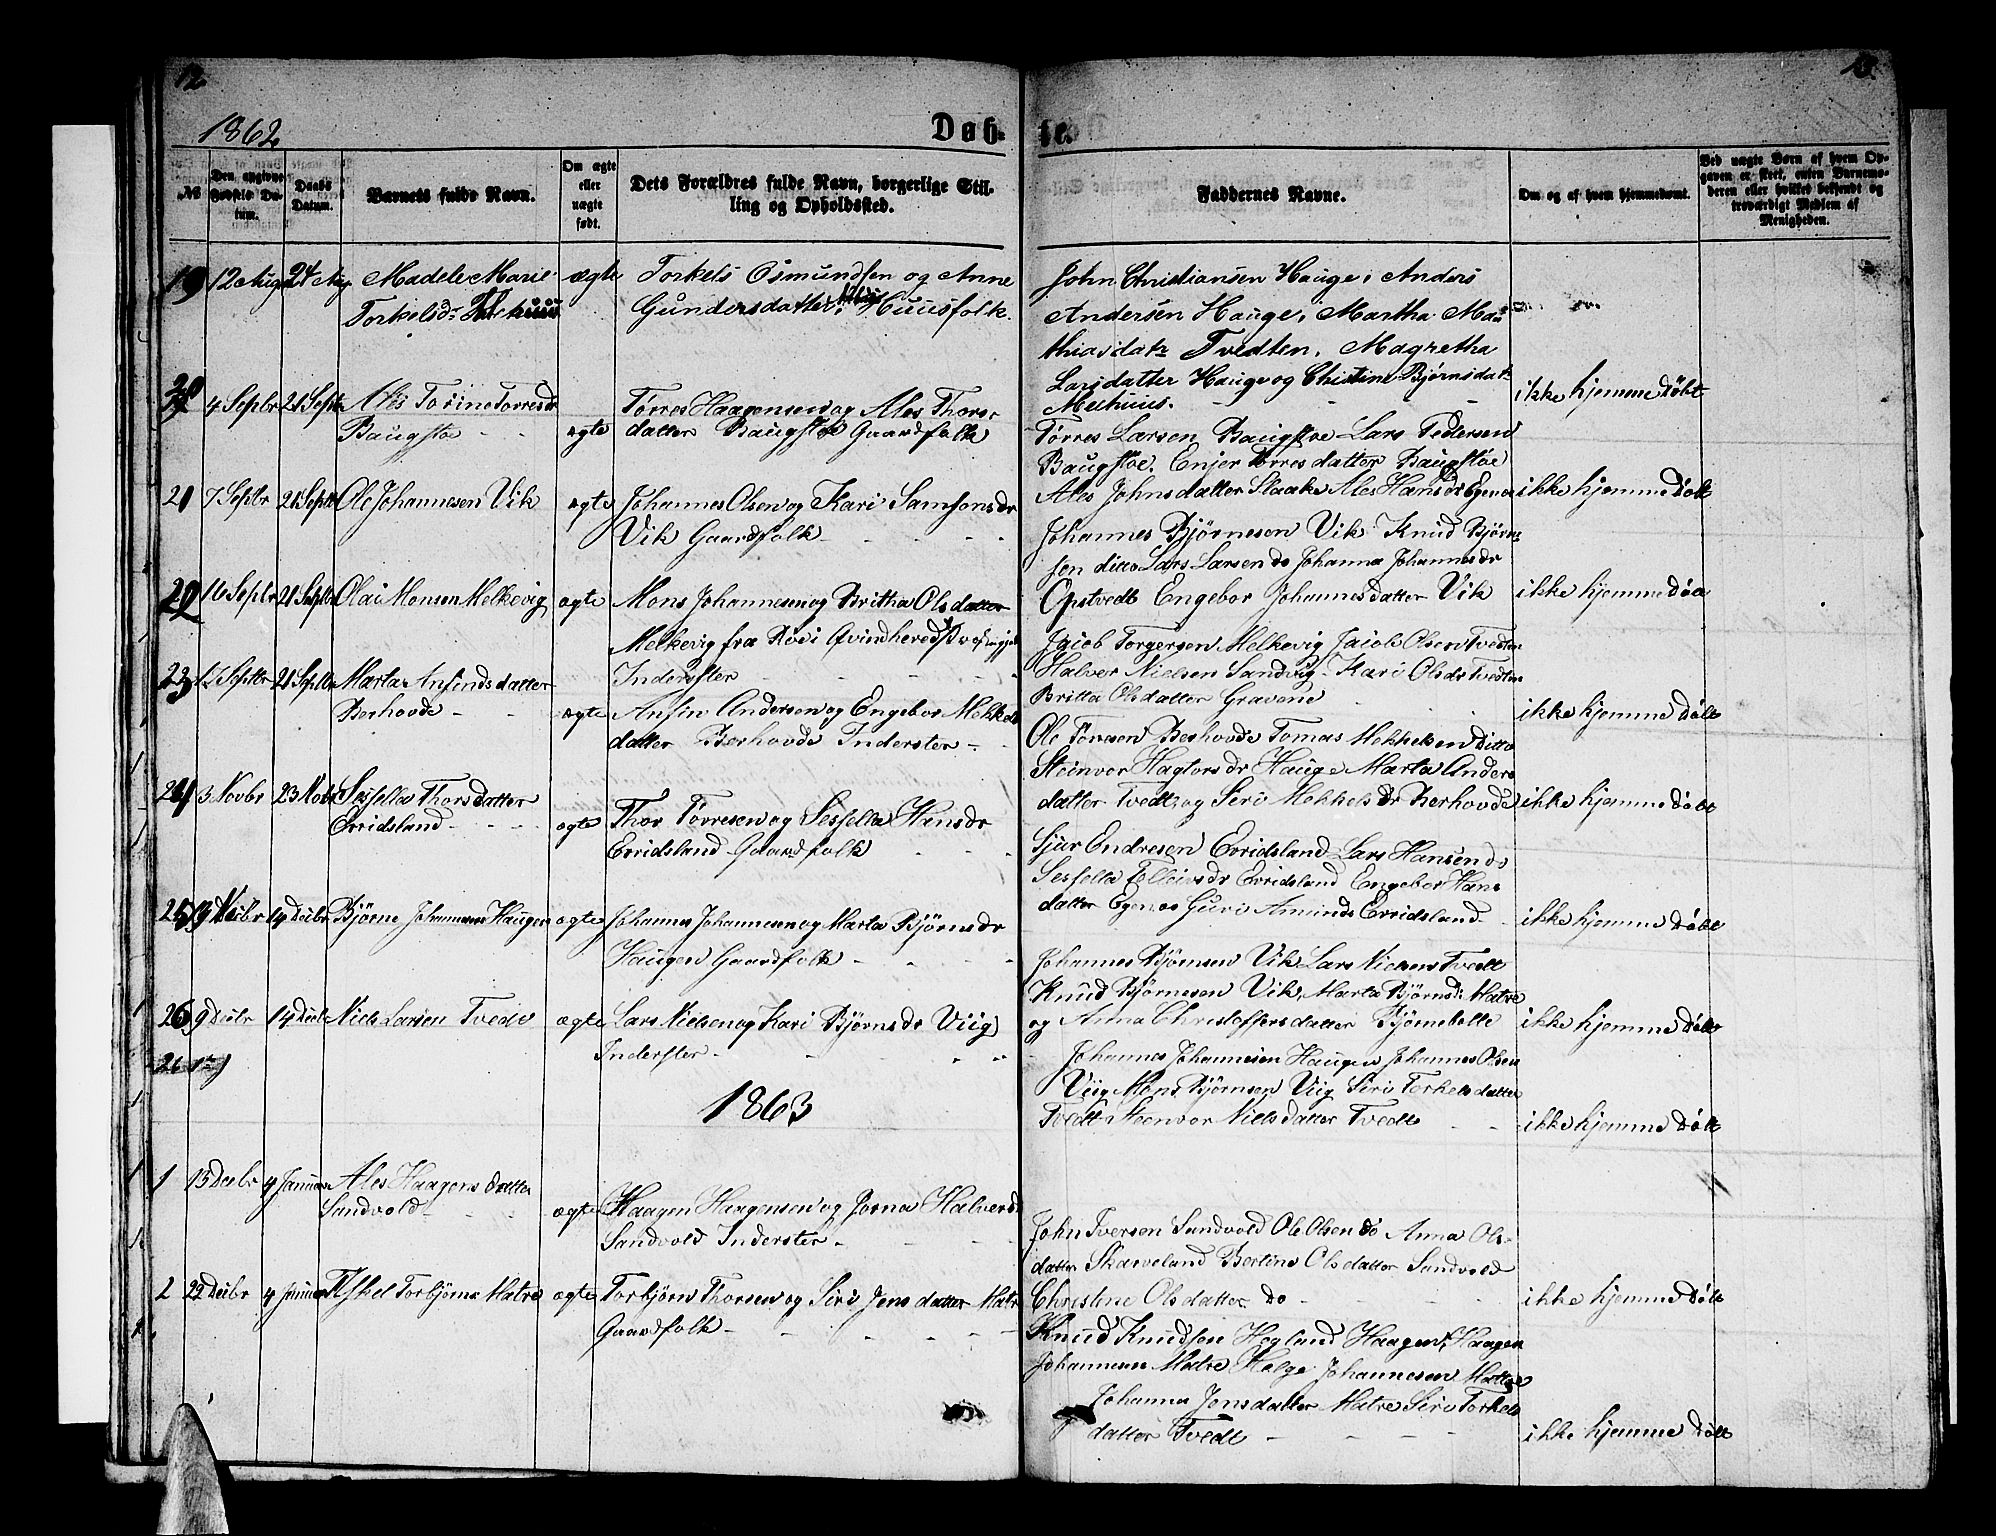 12
13
1862
Døb-
te.
№
Den angivne Fødsels Datum.
Daabs Datum.
Barnets fulde Navn.
Om ægte eller uægte født.
Dets Forældres fulde Navn, borgerlige Stilling og Opholdssted.
Faddernes Navne.
Om og af hvem hjemmedøbt.
Ved uægte Børn af hvem Opgaven er skeet, enten Barnemoderen eller hvilket bekjendt og troværdigt Medlem af Menigheden.
19 12 Aug 24 Aug Madele Marie ægte Torkels Osmundsen og Anne
Torkelsdr
Gundersdatter Huusfolk.
John Christiansen Hauge, Anders
Andersen Hauge, Martha Ma-
thiasdatr Tvedten, Magretha
Larsdatter Hauge og Christine Bjørnsdatr
Melhuus.
ikke hjemme døbt
20 4 Sepbr 21 Septr Ales Torine Torresdr
Baugstøe
ægte
Tørres Haagensen og Ales Thors-
datter Baugstøe Gaardfolk
Tørres Larsen Baugstøe Lars Pedersen
Baugstøe. Enjer Tørresdatter Baugstøe
Ales Johnsdatter Staake Ales Hansdr Egenes
ikke hjemme døbt
21 7 Sepbr 21 Septr Ole Johannesen Vik ægte Johannes Olsen og Kari Samsonsdr
Vik Gaardfolk
Johannes Bjørnesen Vik Knud Bjørn-
sen ditto Lars Larsen do Johanna Johannesdr
Opstvedt Engebor Johannesdatter Vik
ikke hjemme døbt
22 16 Sepbr 21 Septr Olai Monsen Melkevig ægte Mons Johannesen og Britha Olsdatter
Melkevig fra Røe i Qvindhered
Inderster
Jacob Torgersen Melkevig Jacob Olsen Tvedten
Halver Nielsen Sandvig Kari Olsdr Tvedten
Britta Olsdatter Gravene
ikke hjemme døbt
23 Septbr 21 Septbr Marta Anfindsdatter
Berhovde
ægte
Anfin Andersen og Engebor Mekkels
datter Berhovde Inderster
Ole Tøresen Berhovde Tomas Mekkelsen Ditto
Steinvor Hagtorsdr Hauge Marta Anders
datter Tvedt og Seri Mekkelsdr Berhovde
ikke hjemme døbt
24 3 Novbr 23 Nobr Sessella Thorsdatter
Evridsland
ægte
Thor Tørresen og Sessella Hansdr
Evridsland Gaardfolk
Sjur Endresen Evridsland Lars Hansen do
Sessella Tolleivsdr Evridsland Engebor Hans
datter Egenes Guri Aminds Evridsland
ikke hjemme døbt
25 9 Decbr 14 Decbr Bjørne Johannesen Haugen ægte Johannes Johannesen og Marta Bjørnsdr
Haugen Gaardfolk
Johannes Bjørnsen Vik Lars Nielsen Tvedt
Knud Bjørnesen Vik, Marta Bjørnsdr Matre
og Anna Christoffersdatter Bjørnebolle
ikke hjemme døbt
26 9 Decbr 14 Decbr Niels Larsen Tvedt ægte Lars Nielsen og Kari Bjørnsdr Viig
Inderster
Johannes Johannesen Haugen Johannes Olsen
Viig Mons Bjørnsen Viig Siri Torkelsdatter
Tvedt Steenvor Nielsdatter Tvedt
ikke hjemme døbt
1863
1 13 Decbr 4 Januar Ales Haagensdatter
Sandvold
ægte
Haagen Haagensen og Jorna Halversdr
Sandvold Inderster
John Iversen Sandvold Ole Olsen do Anna Ols-
datter Skarveland Bertine Olsdatter Sandvold
Christine Olsdatter do
ikke hjemme døbt
2 22 Decbr 4 Januar Askel Torbjørns Matre ægte Torbjørn Thorsen og Siri Jensdatter Matre
Gaardfolk
Knud Knudsen Hogland Haagen Haagen
Johannesen Matre Helge Johannesen Matre
Johanna Jonsdatter Matre Siri Torkels
datter Tvedt
ikke hjemme døbt